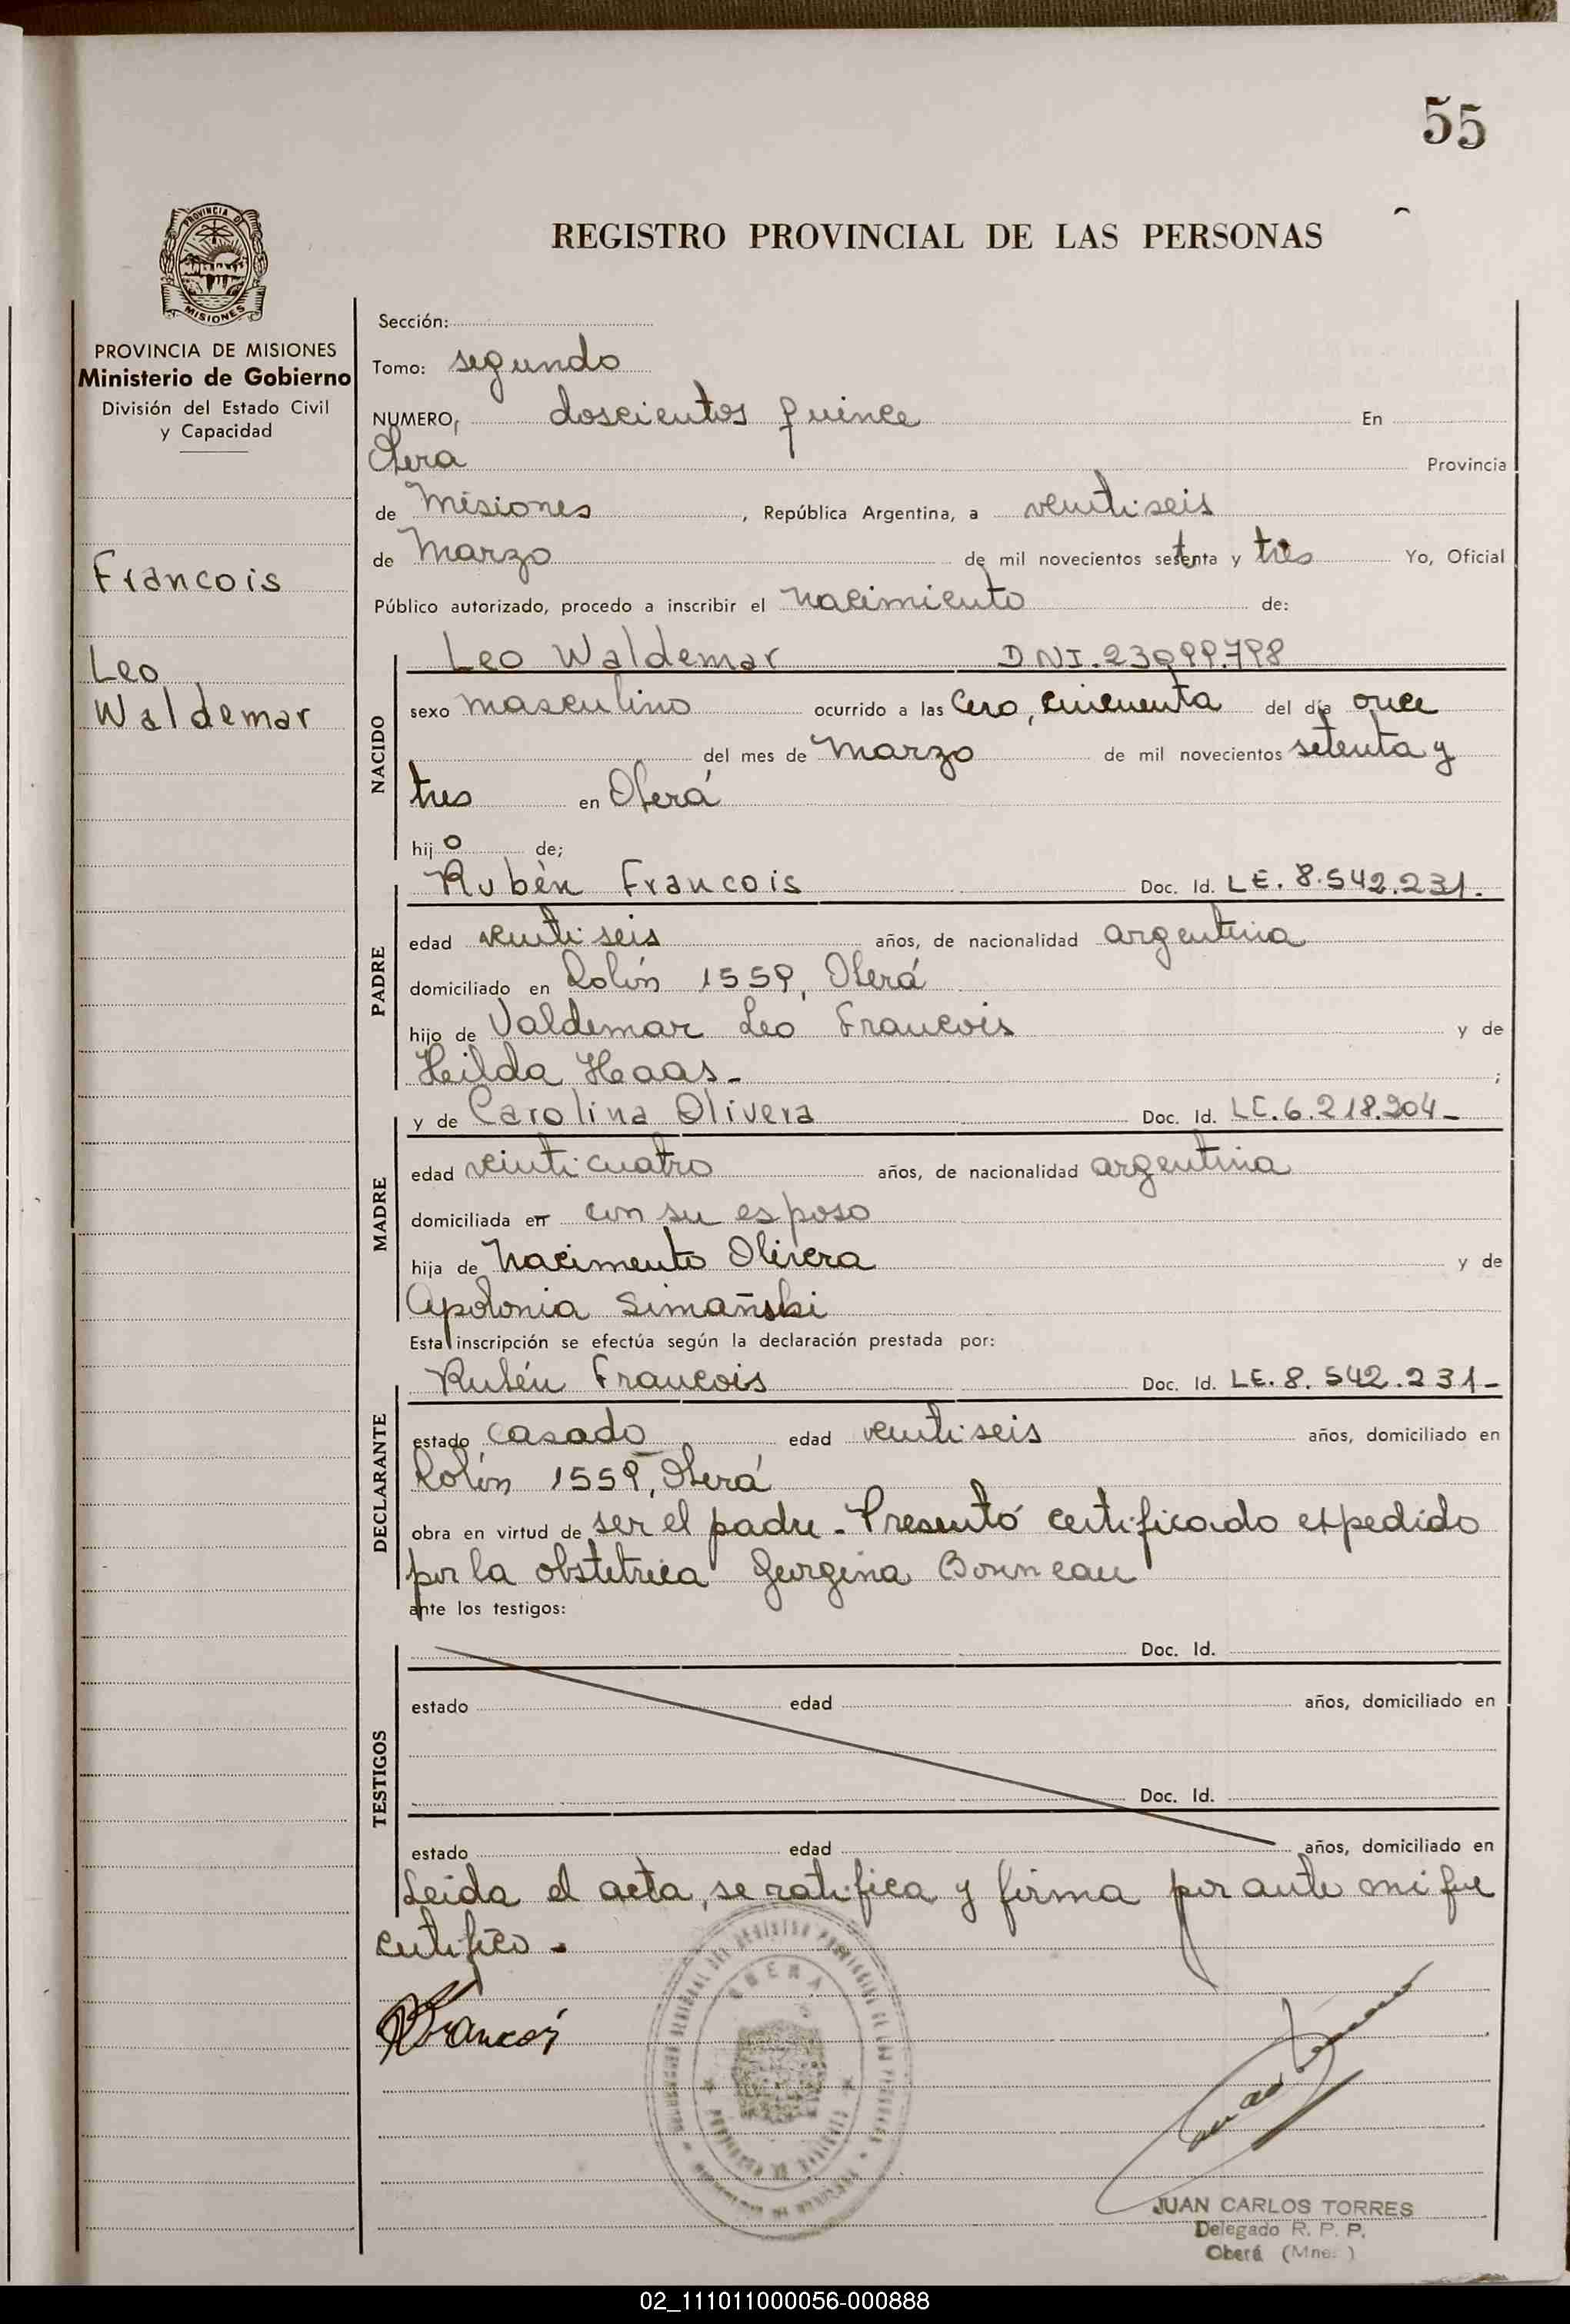 55
PROVINCIA DE
MISIONES
REGISTRO PROVINCIAL DE LAS PERSONAS
PROVINCIA DE MISIONES
Ministerio de Gobierno
División del Estado Civil
y Capacidad
Francois
Leo
Waldemar
Sección:
Tomo: segundo
NUMERO, doscientos quince En
Obera Provincia
de Misiones, República Argentina, a veintiseis
de Marzo de mil novecientos setenta y tres Yo, Oficial
Público autorizado, procedo a inscribir el nacimiento de:
NACIDO
Leo Waldemar DNI.23099.798
sexo masculino ocurrido a las cero, cincuenta del día once
del mes de Marzo de mil novecientos setenta y
tres en Oberá
hijo de;
PADRE
Rubén Francois Doc. Id. LE. 8.542.231.
edad veintiseis años, de nacionalidad argentina
domiciliado en Rolón 1559, Oberá
hijo de Valdemar Leo Francois y de
Hilda Haas- ;
MADRE
y de Carolina Olivera Doc. Id. LC.6.218.204-
edad veinticuatro años, de nacionalidad argentina
domiciliada en con su esposo
hija de Nacimento Olivera y de
Apolonia Simañski
Esta inscripción se efectúa según la declaración prestada por:
DECLARANTE
Rubén Francois Doc. Id. LE. 8. 542.231-
estado casado edad veintiseis años, domiciliado en
Rolón 1559, Oberá
obra en virtud de ser el padre - Presentó certificado expedido
por la obstetrica Georgina Bonneau
ante los testigos:
TESTIGOS
Doc. Id.
estado edad años, domiciliado en
Doc. Id.
estado edad años, domiciliado en
Leida el acta, se ratifica y firma por ante mi que
certifico -
OBERA
JUAN CARLOS TORRES
Delegado R. P. P.
Oberá (Mnes.)
02_111011000056-000888